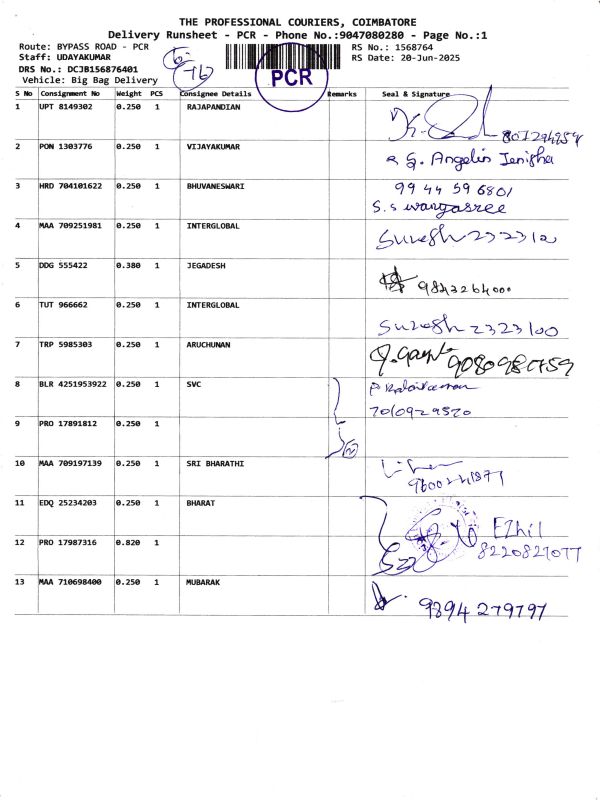 THE PROFESSIONAL COURIERS, COIMBATORE
Delivery Runsheet - PCR - Phone No.:9047080280 - Page No.:1
Route: BYPASS ROAD - PCR
Staff: UDAYAKUMAR
DRS No.: DCJB156876401
Vehicle: Big Bag Delivery
PCR
RS No.: 1568764
RS Date: 20-Jun-2025
S No Consignment No Weight PCS Consignee Details Remarks Seal & Signature
1 UPT 8149302 0.250 1 RAJAPANDIAN
2 PON 1303776 0.250 1 VIJAYAKUMAR G. Angelin Jenisha
3 HRD 704101622 0.250 1 BHUVANESWARI 99 44 59 6801
4 MAA 709251981 0.250 1 INTERGLOBAL Suresh 2323100
5 DDG 555422 0.380 1 JEGADESH 9843264000
6 TUT 966662 0.250 1 INTERGLOBAL Suresh 2323100
7 TRP 5985303 0.250 1 ARUCHUNAN
8 BLR 4251953922 0.250 1 SVC 7010929520
9 PRO 17891812 0.250 1
10 MAA 709197139 0.250 1 SRI BHARATHI
11 EDQ 25234203 0.250 1 BHARAT Ezhil
8220821077
12 PRO 17987316 0.820 1
13 MAA 710698400 0.250 1 MUBARAK 9394279797